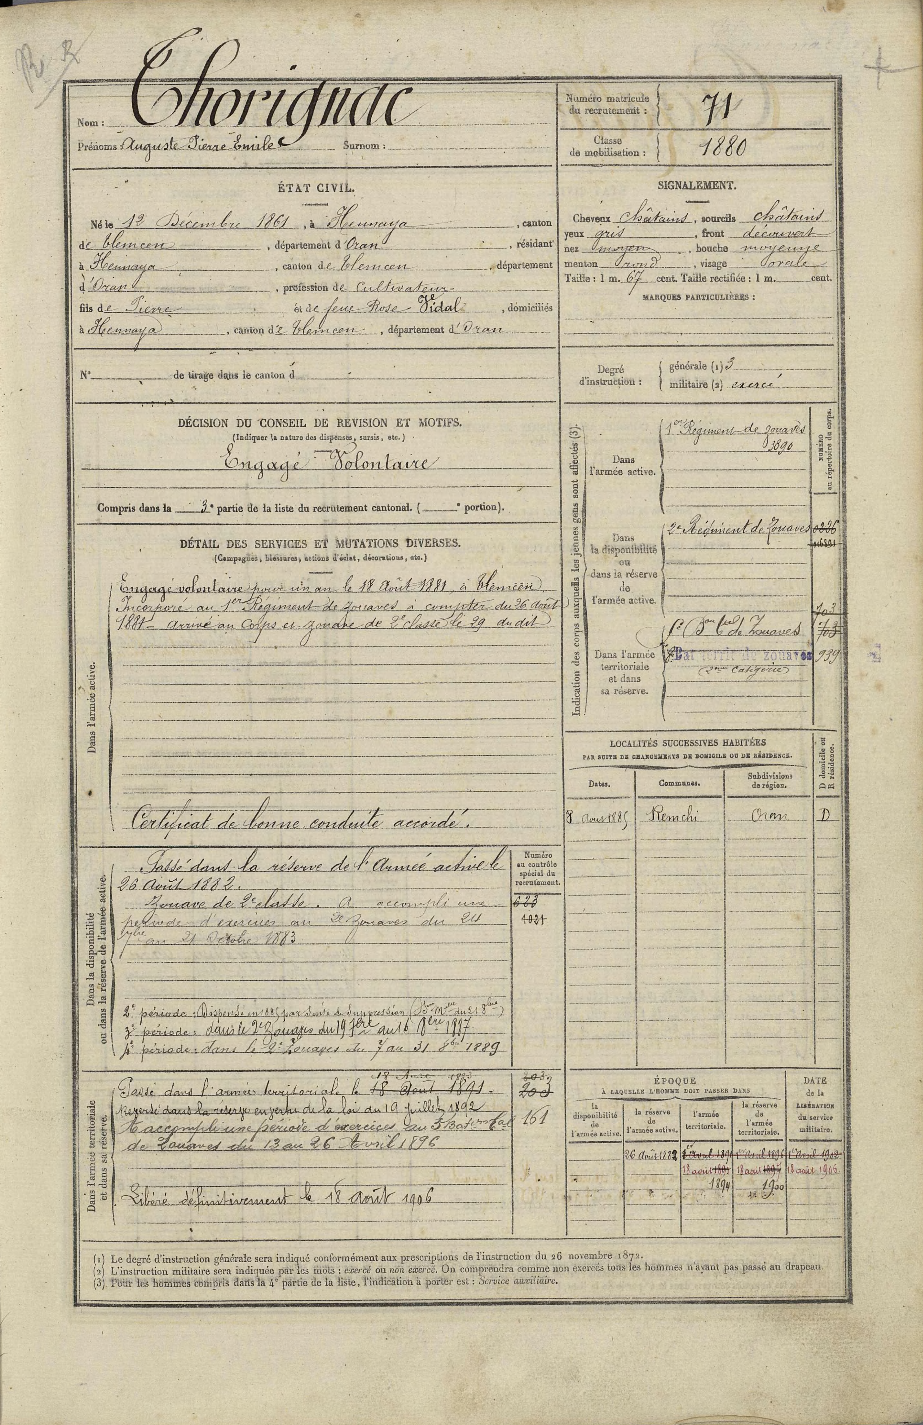 R R
Nom : Thorignac
Prénoms : Auguste Pierre Emile Surnom :
Numéro matricule du recrutement : 71
Classe de mobilisation : 1880
ÉTAT CIVIL.
Né le 12 Décembre 1861, à Hennaya, canton
de Tlemcen, département d'Oran, résidant
à Hennaya, canton de Tlemcen, département
d'Oran, profession de Cultivateur
fils de Pierre et de feue Rose Vidal, domiciliés
à Hennaya, canton de Tlemcen, département d'Oran
N° de tirage dans le canton d
SIGNALEMENT.
Cheveux châtains, sourcils châtains
yeux gris, front découvert
nez moyen, bouche moyenne
menton rond, visage ovale
Taille : 1 m. 67 cent. Taille rectifiée : 1 m. cent.
MARQUES PARTICULIÈRES :
Degré d'instruction : générale (1) 3
militaire (2) exercé
DÉCISION DU CONSEIL DE REVISION ET MOTIFS.
(Indiquer la nature des dispenses, sursis, etc.)
Engagé Volontaire
Compris dans la 3e partie de la liste du recrutement cantonal. ( e portion).
DÉTAIL DES SERVICES ET MUTATIONS DIVERSES.
(Campagnes, blessures, actions d'éclat, décorations, etc.)
Dans l'armée active.
Engagé volontaire pour un an le 18 Août 1881, à Tlemcen
Incorporé au 1er Régiment de zouaves à compter du 26 août
1881 arrivé au Corps et zouave de 2e classe le 29 du dit
Certificat de bonne conduite accordé.
Dans la disponibilité ou dans la réserve de l'armée active.
Numéro au contrôle spécial du recrutement.
Passé dans la réserve de l'Armée active le
26 Août 1882.
Zouave de 2e classe. A accompli une
période d'exercices au 2e Zouaves du 24
7bre au 21 Octobre 1883
623
1031
2e période : Dispensé en 1885 par suite de suppression
3e période : dans le 2e Zouaves du 19 7bre au 16 8bre 1887
4e période : dans le 2e Zouaves du 7 au 31 8bre 1889
Dans l'armée territoriale et dans sa réserve.
Passé dans l'armée territoriale le 18 Août 1891
Reversé dans la réserve en vertu de la loi du 19 juillet 1892
A accompli une période d'exercices au 5e Baton tal
de Zouaves du 13 au 26 Avril 1896
Libéré définitivement le 18 Août 1906
203
161
Indication des corps auxquels les jeunes gens sont affectés (3).
NUMÉRO au répertoire du corps.
Dans l'armée active.
1er Régiment de zouaves
3890
Dans la disponibilité ou dans la réserve de l'armée active.
2e Régiment de Zouaves
Dans l'armée territoriale et dans sa réserve.
Bon tal de Zouaves 703
Bat territ de zouaves 939
(2me catégorie)
LOCALITÉS SUCCESSIVES HABITÉES
PAR SUITE DE CHANGEMENTS DE DOMICILE OU DE RÉSIDENCE.
Dates. Communes. Subdivisions de région. D domicile ou R résidence.
8 Aout 1885 Remchi Oran D
ÉPOQUE
À LAQUELLE L'HOMME DOIT PASSER DANS
DATE DE LA LIBÉRATION du service militaire.
la disponibilité de l'armée active.
la réserve de l'armée active.
l'armée territoriale.
la réserve de l'armée territoriale.
26 Août 1882 1er Avril 1891 1er Avril 1896 1er Avril 1902
18 août 1891 18 août 1897 18 août 1906
1894 1900
(1) Le degré d'instruction générale sera indiqué conformément aux prescriptions de l'instruction du 26 novembre 1872.
(2) L'instruction militaire sera indiquée par les mots : exercé ou non exercé. On comprendra comme non exercés tous les hommes n'ayant pas passé au drapeau.
(3) Pour les hommes compris dans la 4e partie de la liste, l'indication à porter est : Service auxiliaire.